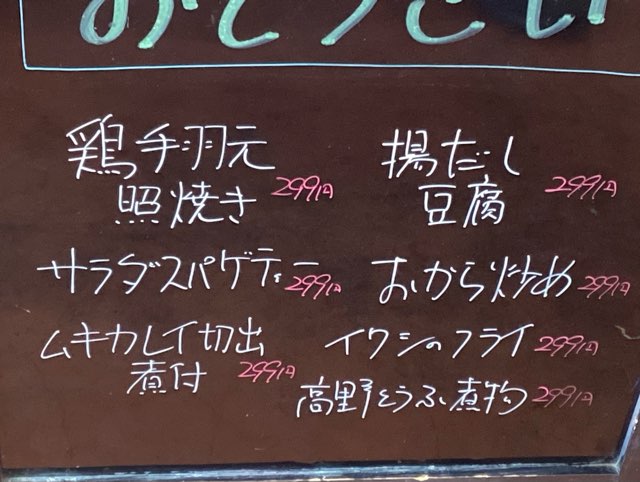 おとうさい
鶏手羽元
照焼き 299円
揚だし
豆腐 299円
サラダスパゲティー 299円
おから炒め 299円
ムキカレイ切出
煮付 299円
イワシのフライ 299円
高野とうふ煮物 299円